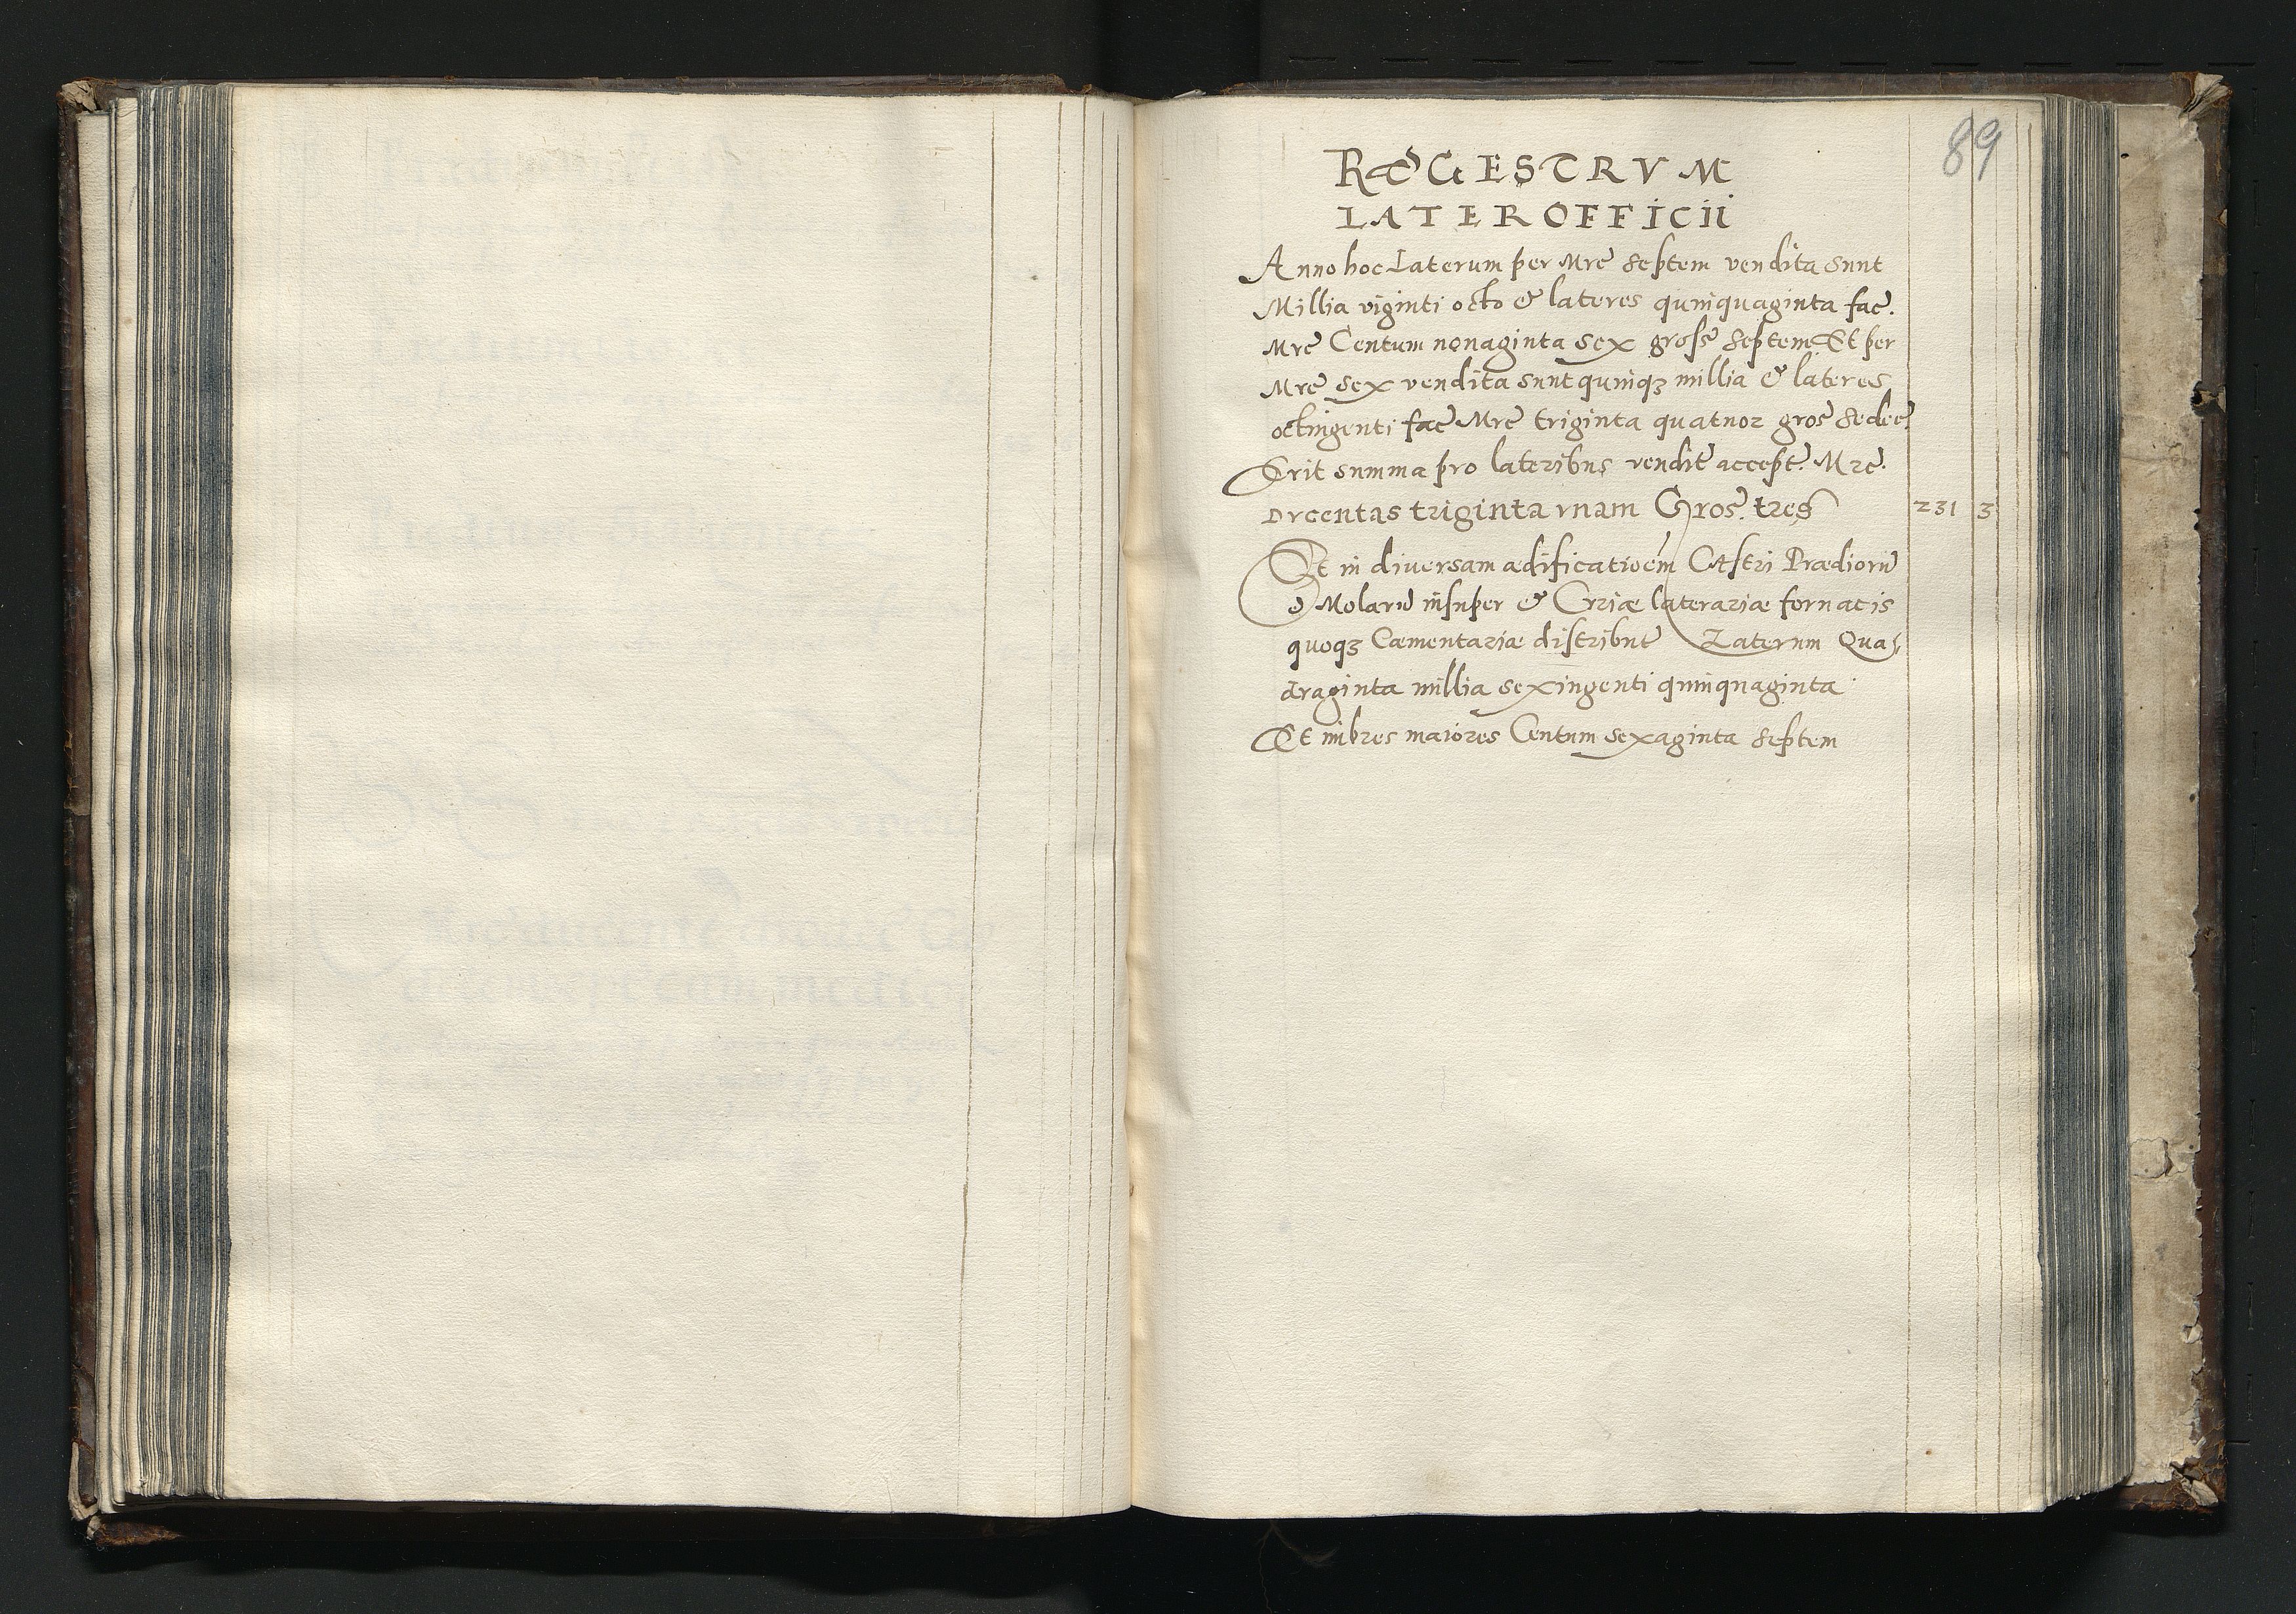 89
RÆGESTRVM
LATEROFFICII
Anno hoc Laterum per Mrc septem vendita sunt
Millia viginti octo & lateres quinquaginta fac.
Mrc Centum nonaginta sex gross septem Et per
Mrc sex vendita sunt quinqꝫ millia & lateres
octingenti fac Mrc triginta quatuor gros sedec
Erit summa pro lateribus vendit accept. Mrc.
Dvcentas triginta vnam Gros. tres 231 3
Et in diversam ædificatioem Castri Prædiorũ
& Molarũ insuper & Crriæ laterariæ fornacis
quoqꝫ Cæmentariæ distribut Laterum Qua
draginta millia sexingenti quinquaginta
Et imbres maiores Centum sexaginta septem